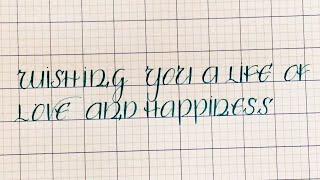 WISHING YOU A LIFE OF
LOVE AND HAPPINESS